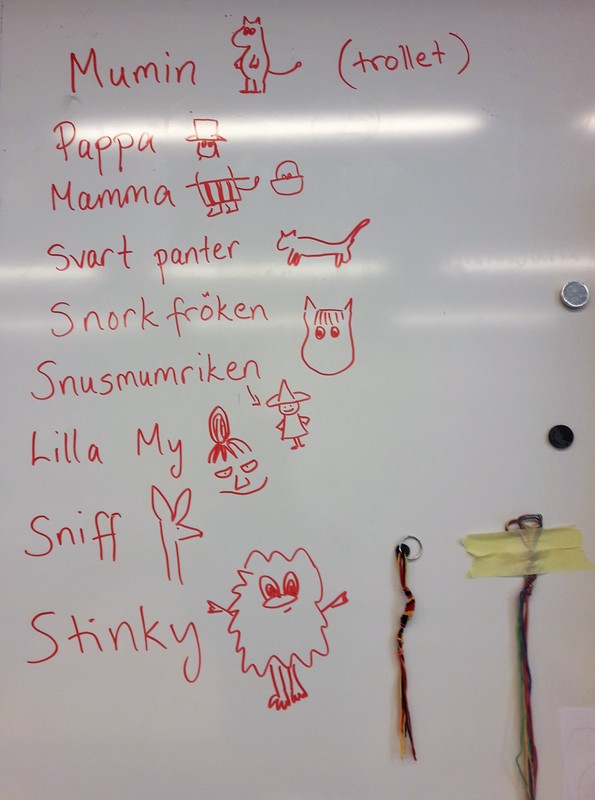 Mumin (trollet)
Pappa
Mamma
Svart panter
Snorkfröken
Snusmumriken
Lilla My
Sniff
Stinky